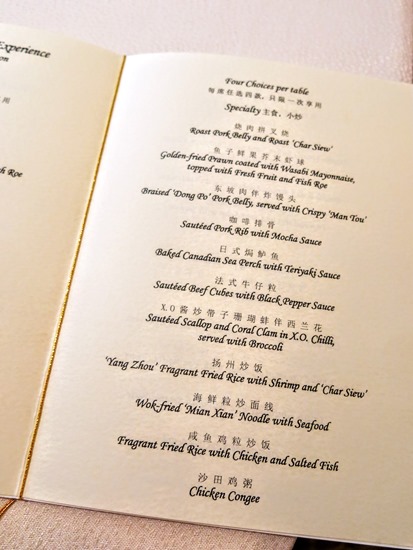 Experience
on
用
h Roe
Four Choices per table
每席任选四款，只限一次享用
Specialty 主食，小炒
烧肉拼叉烧
Roast Pork Belly and Roast 'Char Siew'
鱼子鲜果芥末虾球
Golden-fried Prawn coated with Wasabi Mayonnaise,
topped with Fresh Fruit and Fish Roe
东坡肉伴炸馒头
Braised 'Dong Po' Pork Belly, served with Crispy 'Man Tou'
咖啡排骨
Sautéed Pork Rib with Mocha Sauce
日式焗鲈鱼
Baked Canadian Sea Perch with Teriyaki Sauce
法式牛仔粒
Sautéed Beef Cubes with Black Pepper Sauce
X.O酱炒带子珊瑚蚌伴西兰花
Sautéed Scallop and Coral Clam in X.O. Chilli,
served with Broccoli
扬州炒饭
'Yang Zhou' Fragrant Fried Rice with Shrimp and 'Char Siew'
海鲜炒面线
Wok-fried 'Mian Xian' Noodle with Seafood
咸鱼鸡粒炒饭
Fragrant Fried Rice with Chicken and Salted Fish
沙田鸡粥
Chicken Congee